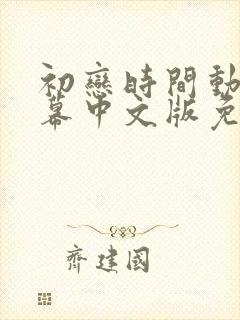 初戀時間動
幕中文版免
齊建國